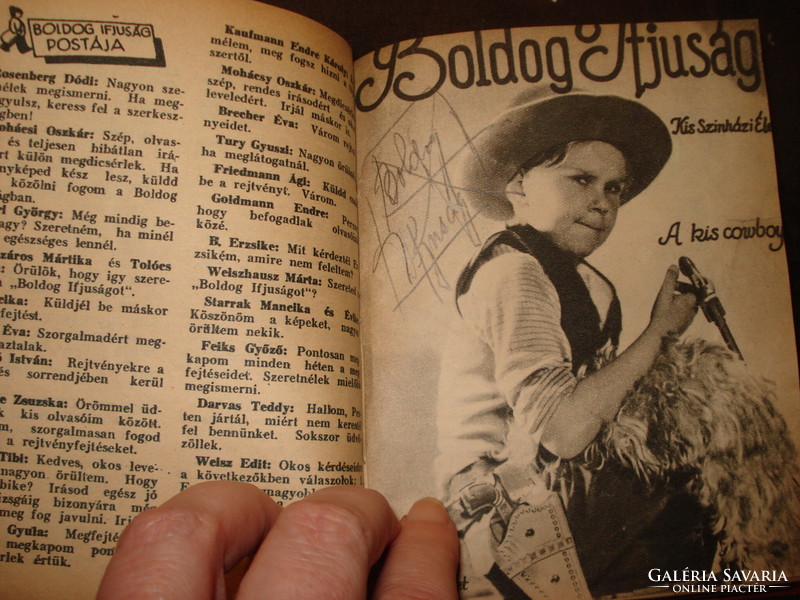 BOLDOG IFJUSÁG
POSTÁJA
Rosenberg Dódi: Nagyon sze-
nélek megismerni. Ha meg-
gyulsz, keress fel a szerkesz-
égben!
Mohácsi Oszkár: Szép, olvas-
és teljesen hibátlan irá-
rt külön megdicsérlek. Ha
nyképed kész lesz, küldd
közölni fogom a Boldog
ságban.
ri György: Még mindig be-
vagy? Szeretném, ha minél
egészséges lennél.
száros Mártika és Tolócs
Örülök, hogy igy szere-
a „Boldog Ifjuságot".
elka: Küldjél be máskor
fejtést.
Éva: Szorgalmadért meg-
aztalak.
ó István: Rejtvényekre a
és sorrendjében kerül
e Zsuzska: Örömmel üd-
k kis olvasóim között.
m, szorgalmasan fogod
a rejtvényfejtéseket.
Tibi: Kedves, okos leve-
nagyon örültem. Hogy
bike? Irásod egész jó
izsgáig bizonyára még
meg fog javulni. Iri
Gyula: Megfejté
megkapom pon
erlek értük.
Kaufmann Endre Károly:
mélem, meg fogsz hizni a
szertől.
Mohácsy Oszkár: Megdicsé
szép, rendes irásodért és
leveledért. Irjál máskor is.
Brecher Éva: Várom rej
nyeidet.
Tury Gyuszi: Nagyon örül
ha meglátogatnál.
Friedmann Ági: Küldd
be a rejtvényt. Várom.
Goldmann Endre: Persze
hogy befogadlak olvasói
közé.
B. Erzsike: Mit kérdeztél
zsikém, amire nem feleltem?
Weiszhausz Márta: Szereted
„Boldog Ifjuságot"?
Starrak Mancika és
Köszönöm a képeket, nagyo
örültem nekik.
Feiks Győző: Pontosan meg
kapom minden héten a meg
fejtéseidet. Szeretnélek mielőbb
megismerni.
Darvas Teddy: Hallom, Pes
ten jártál, miért nem kerestél
fel bennünket. Sokszor üdvö
zöllek.
Weisz Edit: Okos kérdéseidre
a következőkben válaszolok: 1.
nagyobb
Boldog Ifjuság
Kis Szinházi Éle
A kis cowboy
Boldog
Ifjuság
GALÉRIA SAVARIA
ONLINE PIACTÉR